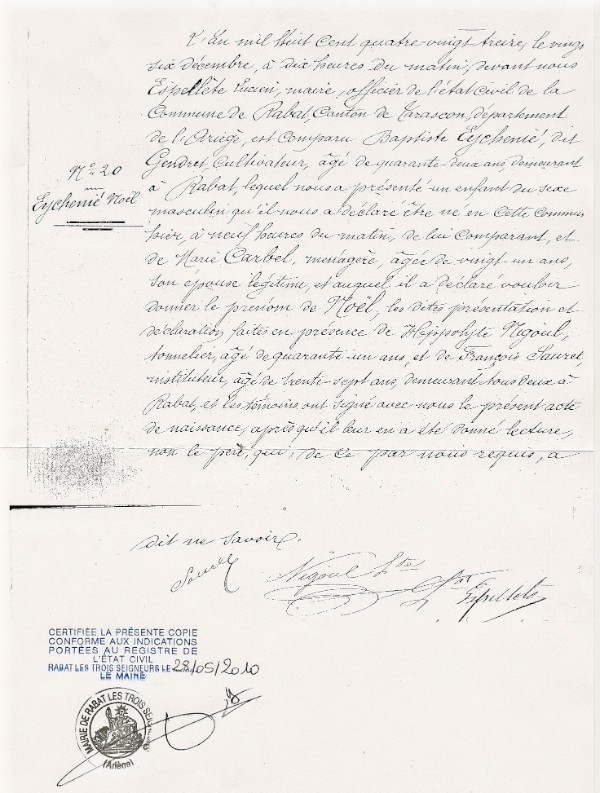 L'an mil huit cent quatre-vingt treize, le vingt
six décembre, à dix heures du matin, devant nous
Espellète Lucien, maire, officier de l'état civil de la
Commune de Rabat, Canton de Tarascon, département
de l'Ariège, est comparu Baptiste Eychenié, dit
Gendret, Cultivateur, âgé de quarante-deux ans, demeurant
N° 20
Eychenié Noël
à Rabat, lequel nous a présenté un enfant du sexe
masculin qu'il nous a déclaré être né en cette commune
hier, à neuf heures du matin, de lui comparant, et
de Marie Carbel, ménagère, âgée de vingt-un ans,
son épouse légitime, et auquel il a déclaré vouloir
donner le prénom de Noël, les dites présentation et
déclaration faites en présence de Hippolyte Nigoul,
tonnelier, âgé de quarante-un ans, et de François Sauret,
instituteur, âgé de trente-sept ans, demeurant tous deux à
Rabat, et les témoins ont signé avec nous le présent acte
de naissance, après qu'il leur en a été donné lecture,
non le père, qui, de ce par nous requis, a
dit ne savoir.
Nigoul
Espellete
CERTIFIÉE LA PRÉSENTE COPIE
CONFORME AUX INDICATIONS
PORTÉES AU REGISTRE DE
L'ÉTAT CIVIL
RABAT LES TROIS SEIGNEURS LE 28/05/2010
LE MAIRE
MAIRIE DE RABAT LES TROIS SEIGNEURS
(Ariège)